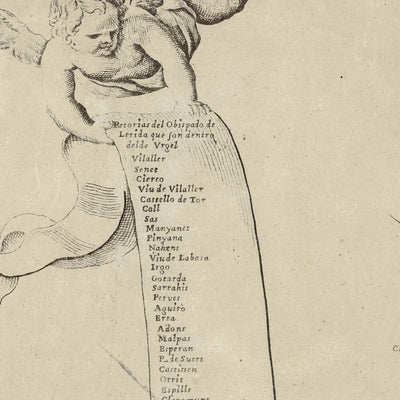 Retorias del Obispado de
Lerida que son dentro
delde Vrgel
Vilaller
Senet
Cierco
Viu de Vilaller
Castello de Tor
Coll
Sas
Manyanet
Pinyana
Nahens
Viu de Labata
Irgo
Gotarda
Sarrahis
Perves
Aguirò
Erta
Adons
Malpas
Esperan
P. de Suert
Castissen
Orrit
Espills